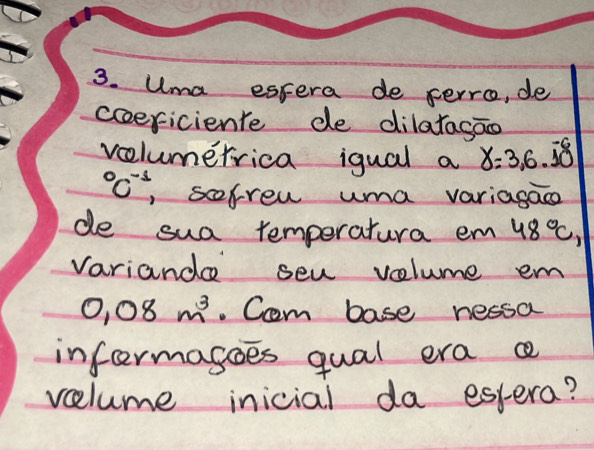 3. Uma esfera de ferro, de
coeficiente de dilatação
volumétrica igual a γ=3,6.10⁻⁶
°C⁻¹, sofreu uma variação
de sua temperatura em 48°C,
variando seu volume em
0,08 m³. Com base nessa
informações qual era o
volume inicial da esfera?